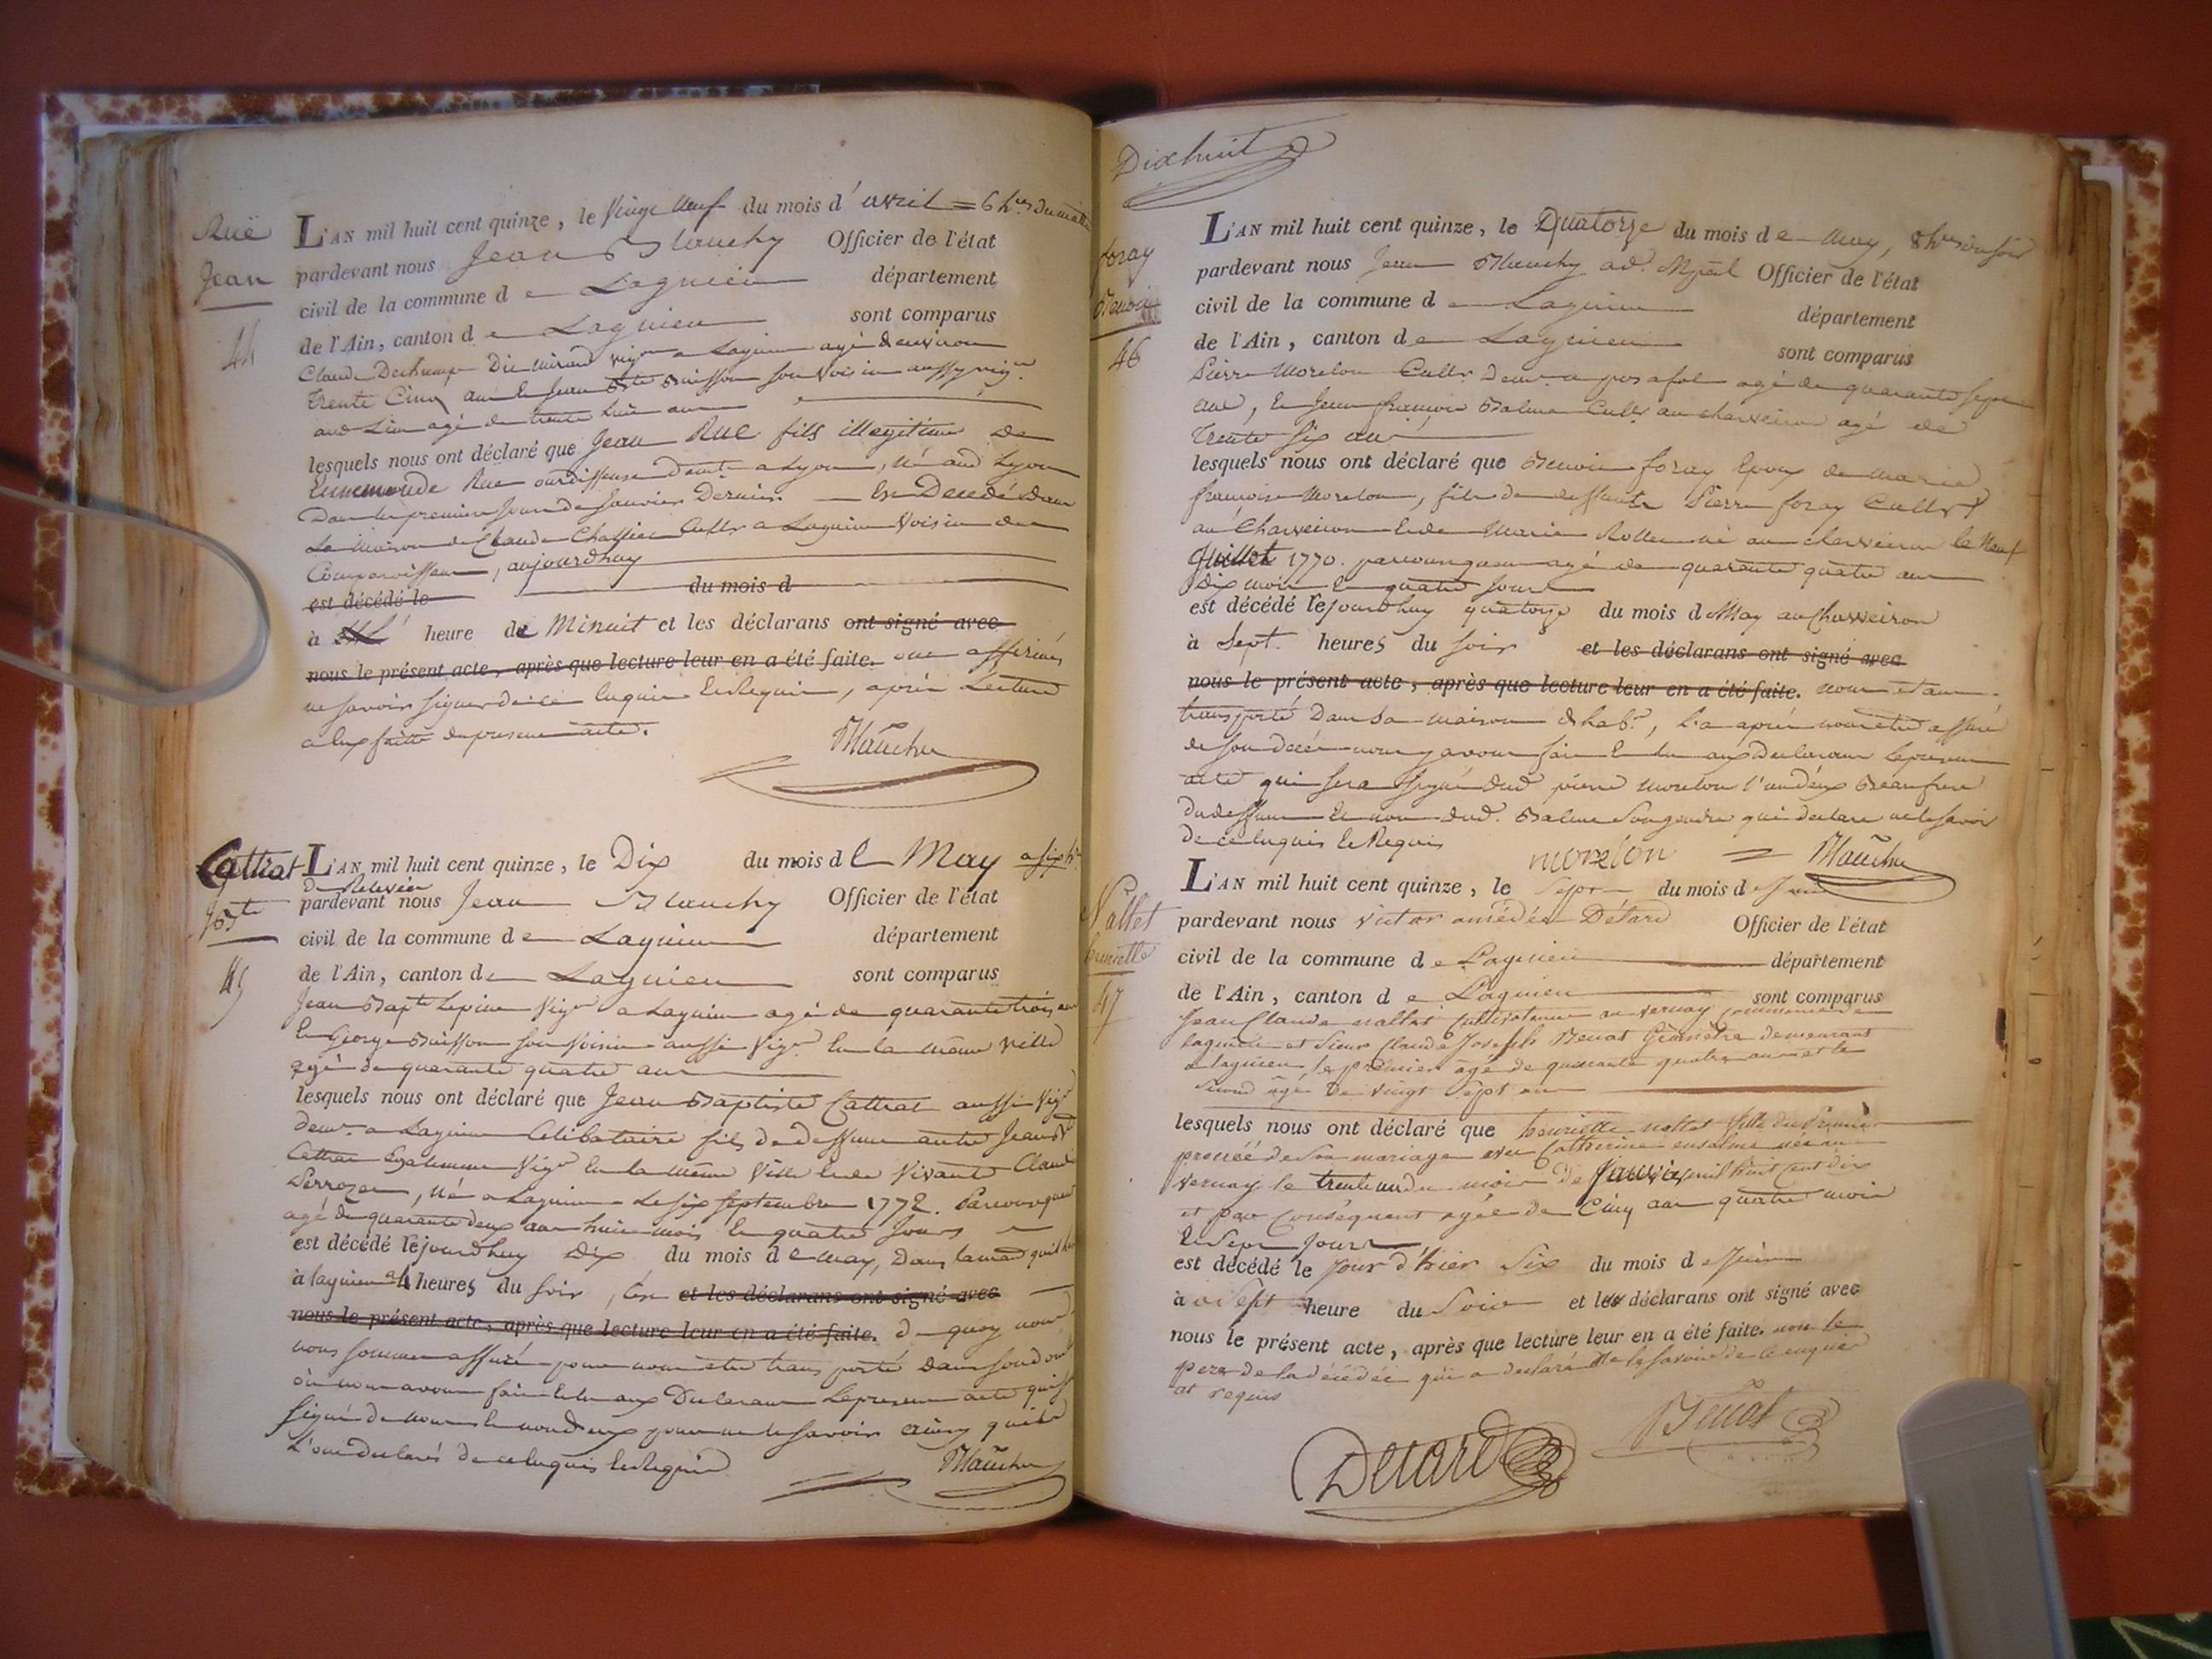 Rüe
Jean
44
L'AN mil huit cent quinze, le Vingt Neuf du mois d'avril = 6 h.res du matin
pardevant nous Jean Blanchy Officier de l'état
civil de la commune de Lagnieu département
de l'Ain, canton de Lagnieu sont comparus
Claude Dechamp Dit Mirand vig.on a Lagnieu agé denviron
trente Cinq ans et Jean Bte Buisson son Voisin aussy vig.n
aud. Lieu agé de trente huit ans
lesquels nous ont déclaré que Jean Rue fils illegitime de
Ennemonde Rue ourdisseuse Demte a Lyon, né aud Lyon
Dans les premiers Jours de Janvier Dernier. Est Decedé dans
la maison de Claude Cultr a Lagnieu Voisin des
Comparoissans, aujourdhuy
est décédé le du mois d
à heure de Minuit et les déclarans ont signé avec
nous le présent acte, après que lecture leur en a été faite. ont affirmés
ne savoir signer de ce Enquis et Requis, après Lecture
a Eux faitte du present acte.
Blanchy
Cattrat
J Bte
45
L'AN mil huit cent quinze, le Dix du mois de May a six h.
de Relevée
pardevant nous Jean Blanchy Officier de l'état
civil de la commune de Lagnieu département
de l'Ain, canton de Lagnieu sont comparus
Jean Bapte Lepine Vig.n a Lagnieu agé de quarante trois ans
Et George Buisson son Voisin aussi Vig.n En la même Ville
agé de quarante quatre ans
lesquels nous ont déclaré que Jean Baptiste Cattrat aussi Vig.n
demt. a Lagnieu Celibataire fils de deffunt autre Jean B.
Cattrat Egalement Vig.n En la même Ville et de Vivante Claud.
Perrozet, Né a Lagnieu Le six Septembre 1772. Parconsequent
agé de quarante deux ans huit mois Et quatre Jours
est décédé lejourdhuy Dix du mois de may, Dans la maison qu'il
à lagnieu a 4 heures du soir, et les déclarans ont signé avec
nous le présent acte, après que lecture leur en a été faite. de quoy nous
nous sommes assuré pour nous etre transporté dans son dom.
où nous avons fait Et lu aux Declarans Le present acte qui est
signé de Nous Et non d'eux pour ne le savoir ainsy qu'ils
L'ont declarés de ce Enquis et Requis
Blanchy
Dixhuit
foray
Benoit
46
L'AN mil huit cent quinze, le Quatorze du mois de May, 8 h.res du soir
pardevant nous Jean Blanchy ad. Mpal Officier de l'état
civil de la commune de Lagnieu département
de l'Ain, canton de Lagnieu sont comparus
Pierre Morelon Cultr. Demt. a posafol agé de quarante sept
ans, Et Jean françois Balme Cultr au charveiron agé de
trente six ans
lesquels nous ont déclaré que Benoit foray Epoux de Marie
françoise Morelon, fils de deffunts Pierre foray Cultr
au Charveiron Et de Marie Rollet né au charveiron le Neuf
Juillet 1770. parconsequent agé de quarante quatre ans
dix mois Et quatre Jours
est décédé lejourdhuy quatorze du mois d May au Charveiron
à Sept heures du soir et les déclarans ont signé avec
nous le présent acte, après que lecture leur en a été faite. nous etant
transporté Dans sa maison d'hab.on, Et après nous etre assuré
de son Decès nous y avons fait Et lu aux Declarans Le present
acte qui sera signé dud pierre morelon l'un d'eux Beaufrere
du deffunt Et non dud. Balme Son gendre qui declare ne le savoir
de ce Enquis et Requis
morelon Blanchy
Nallet
henriette
47
L'AN mil huit cent quinze, le Sept du mois de Juin
pardevant nous Victor amédée Détard Officier de l'état
civil de la commune de Lagnieu département
de l'Ain, canton de Lagnieu sont comparus
Jean Claude nallet Cultivateur au vernay commune de
lagnieu et Sieur Claude Joseph Benat Géomètre demeurant
a lagnieu, le premier âgé de quarante quatre ans et le
second âgé de vingt Sept ans
lesquels nous ont déclaré que henriette nallet fille du premier
procréée de son mariage avec Catherine née au
vernay le trente un du mois de Janvier mil huit Cent dix
et par Conséquent agée de Cinq ans quatre mois
Et Sept Jours
est décédé le Jour d'hier Six du mois de Juin
à Sept heure du Soir et les déclarans ont signé avec
nous le présent acte, après que lecture leur en a été faite. non le
pere de la décédée qui a declaré ne le savoir de ce enquis
et requis
Benat
Détard